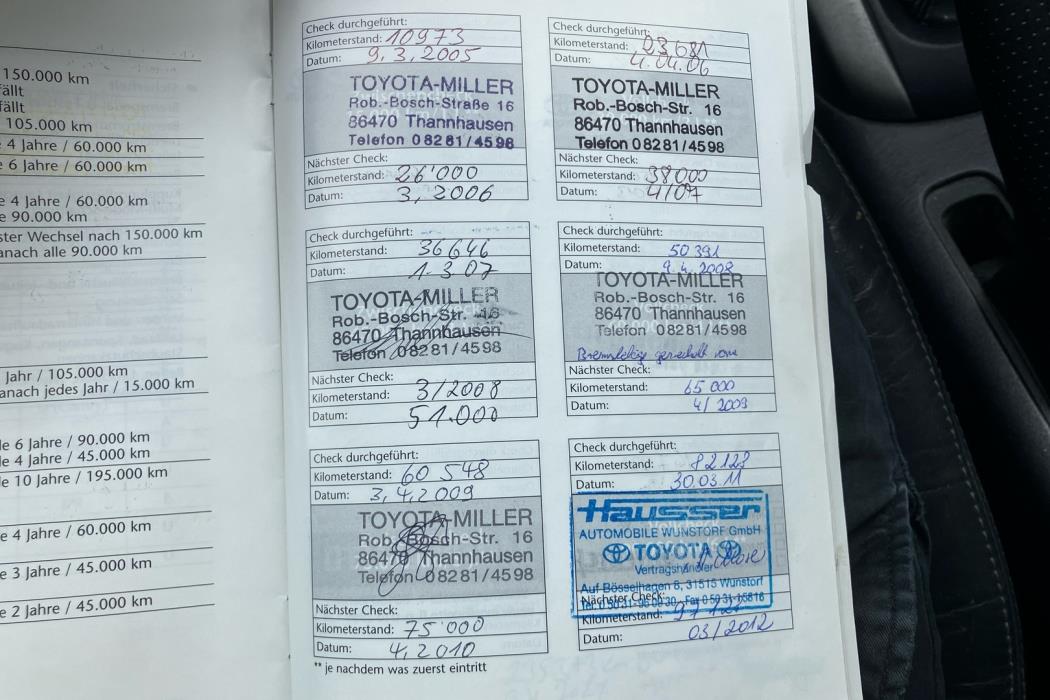 150.000 km
fällt
fällt
105.000 km
e 4 Jahre / 60.000 km
e 6 Jahre / 60.000 km
e 4 Jahre / 60.000 km
e 90.000 km
ster Wechsel nach 150.000 km
anach alle 90.000 km
Jahr / 105.000 km
anach jedes Jahr / 15.000 km
le 6 Jahre / 90.000 km
le 4 Jahre / 45.000 km
le 10 Jahre / 195.000 km
e 4 Jahre / 60.000 km
e 3 Jahre / 45.000 km
e 2 Jahre / 45.000 km
Check durchgeführt:
Kilometerstand: 10973
Datum: 9.3.2005
TOYOTA-MILLER
Rob.-Bosch-Straße 16
86470 Thannhausen
Telefon 08281/4598
Nächster Check:
Kilometerstand: 26'000
Datum: 3.2006
Check durchgeführt:
Kilometerstand: 23681
Datum: 4.04.06
TOYOTA-MILLER
Rob.-Bosch-Str. 16
86470 Thannhausen
Telefon 08281/4598
Nächster Check:
Kilometerstand: 38000
Datum: 4/07
Check durchgeführt:
Kilometerstand: 36646
Datum: 1.3.07
TOYOTA-MILLER
Rob.-Bosch-Str. 16
86470 Thannhausen
Telefon 08281/4598
Nächster Check:
Kilometerstand: 3/2008
Datum: 51.000
Check durchgeführt:
Kilometerstand: 50391
Datum: 9.4.2008
TOYOTA-MILLER
Rob.-Bosch-Str. 16
86470 Thannhausen
Telefon 08281/4598
Nächster Check:
Kilometerstand: 65000
Datum: 4/2009
Check durchgeführt:
Kilometerstand: 60548
Datum: 3.4.2009
TOYOTA-MILLER
Rob.-Bosch-Str. 16
86470 Thannhausen
Telefon 08281/4598
Nächster Check:
Kilometerstand: 75'000
Datum: 4.2010
Check durchgeführt:
Kilometerstand:
Datum: 30.03.11
Hausser
AUTOMOBILE WUNSTORF GmbH
TOYOTA
Vertragshändler
Auf Bösselhagen 8, 31515 Wunstorf
Nächster Check:
Kilometerstand:
Datum: 03/2012
** je nachdem was zuerst eintritt